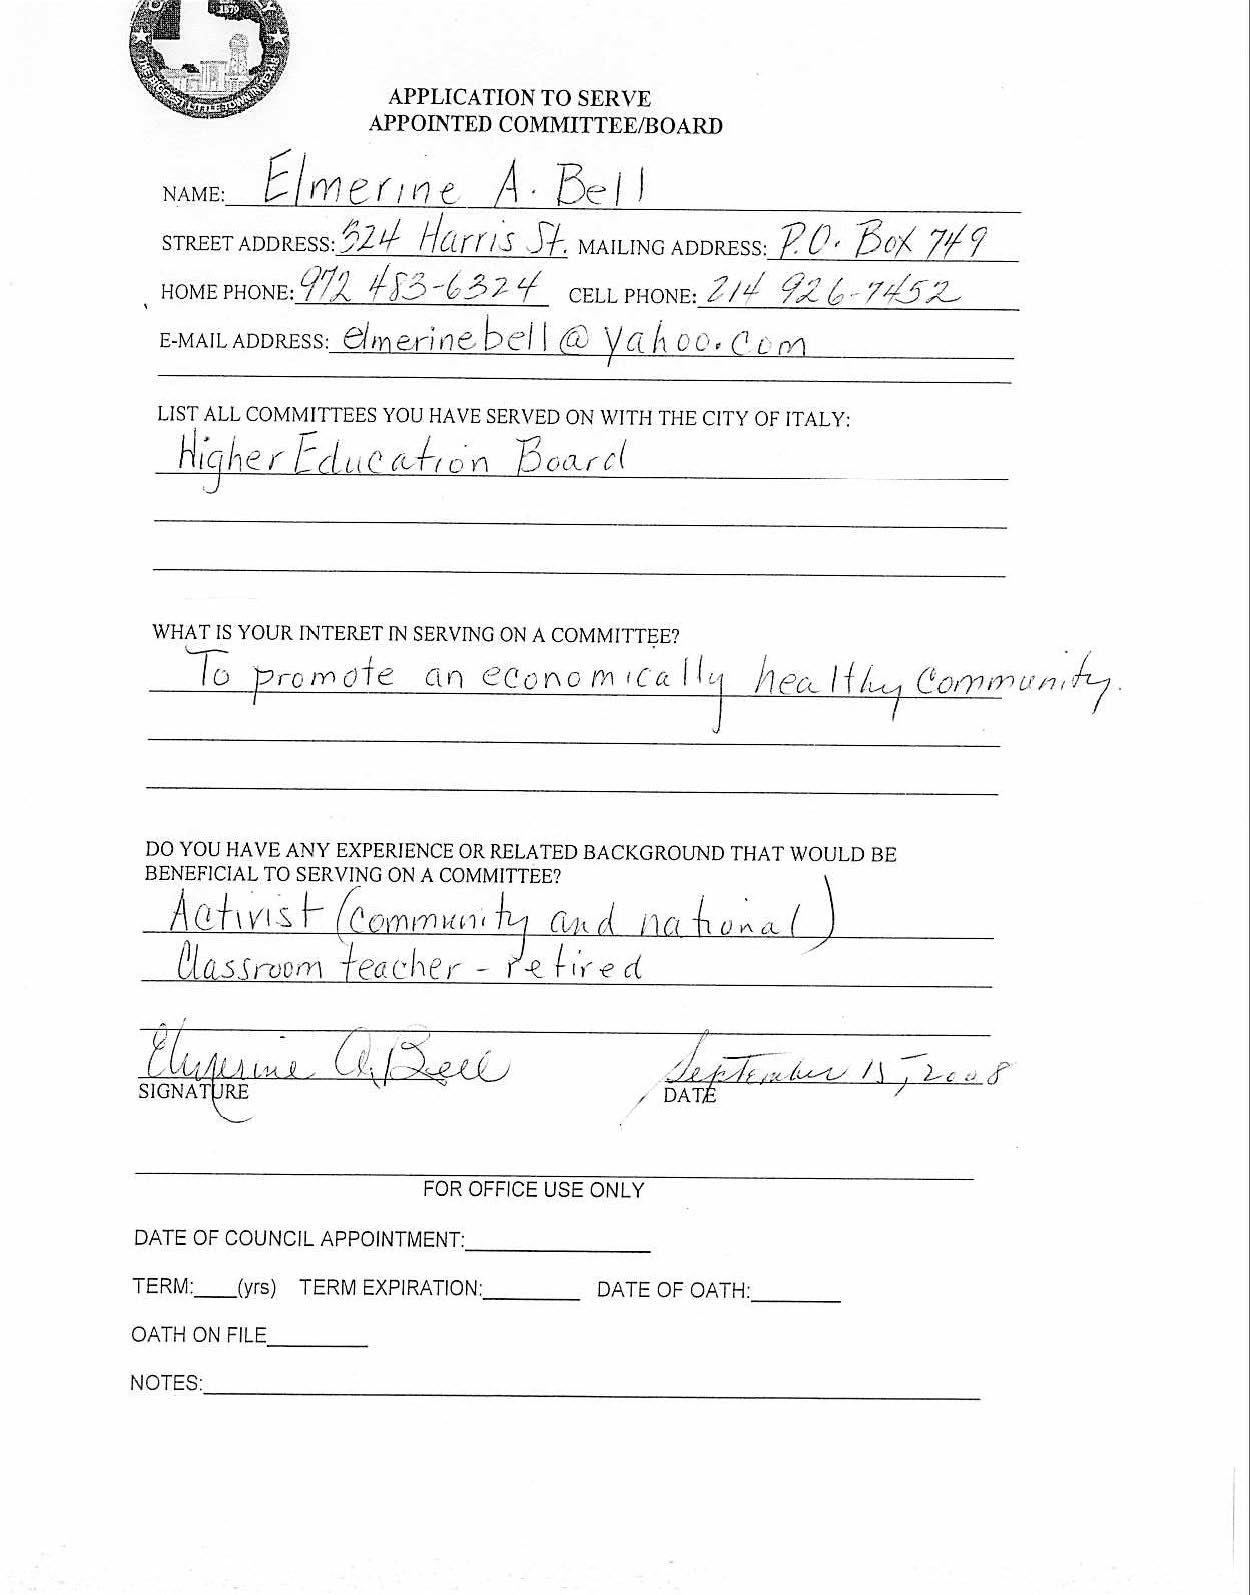 1879
THE BIGGEST LITTLE TOWN IN TEXAS
APPLICATION TO SERVE
APPOINTED COMMITTEE/BOARD
NAME: Elmerine A. Bell
STREET ADDRESS: 324 Harris St. MAILING ADDRESS: P.O. Box 749
HOME PHONE: 972 483-6324 CELL PHONE: 214 926-7452
E-MAIL ADDRESS: elmerinebell@yahoo.com
LIST ALL COMMITTEES YOU HAVE SERVED ON WITH THE CITY OF ITALY:
Higher Education Board
WHAT IS YOUR INTERET IN SERVING ON A COMMITTEE?
To promote an economically healthy community.
DO YOU HAVE ANY EXPERIENCE OR RELATED BACKGROUND THAT WOULD BE
BENEFICIAL TO SERVING ON A COMMITTEE?
Activist (community and national)
Classroom teacher - retired
Elmerine A. Bell September 15, 2008
SIGNATURE DATE
FOR OFFICE USE ONLY
DATE OF COUNCIL APPOINTMENT:
TERM: (yrs) TERM EXPIRATION: DATE OF OATH:
OATH ON FILE
NOTES: